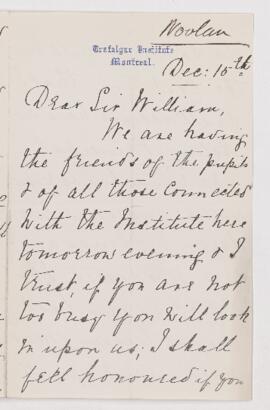 Woolan
Trafalgar Institute
Montreal.
Dec: 15th
Dear Sir William,
We are having
the friends of the pupils
& of all those connected
with the Institute here
tomorrow evening & I
trust, if you are not
too busy you will look
in upon us; I shall
fell honoured if you